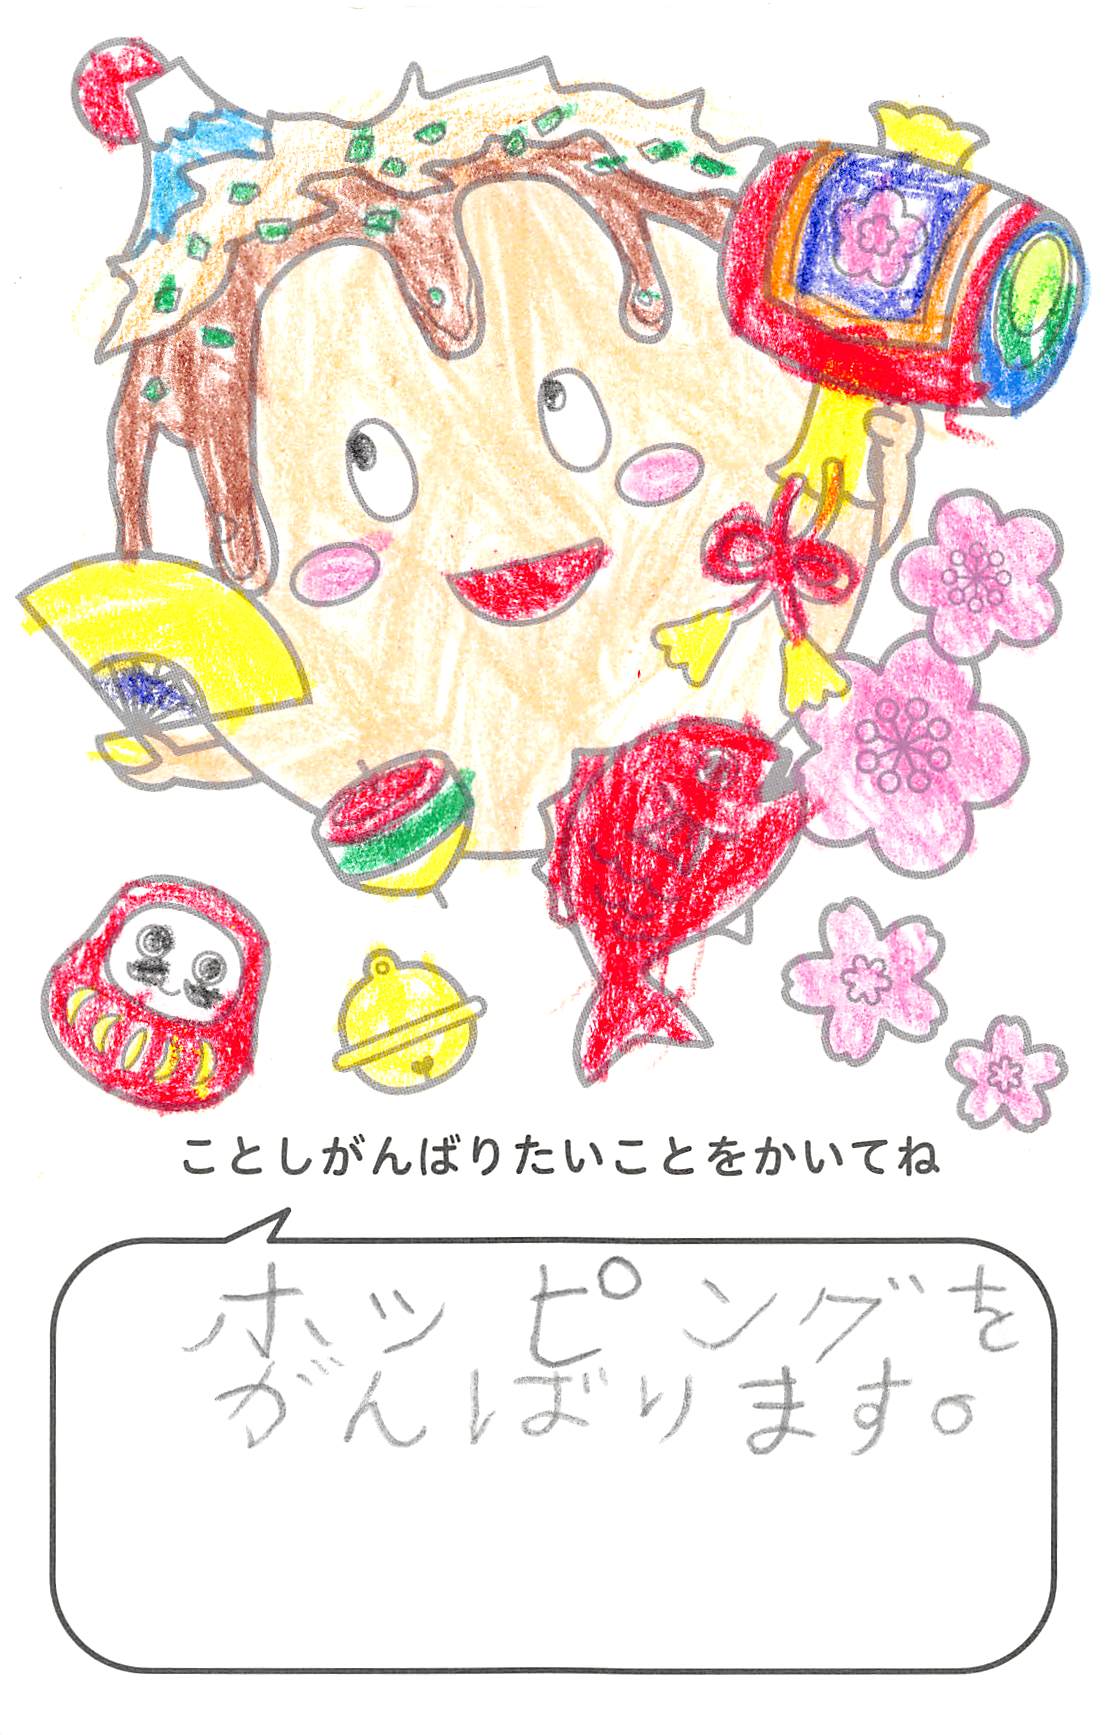 ことしがんばりたいことをかいてね
ホッピングを
がんばります。